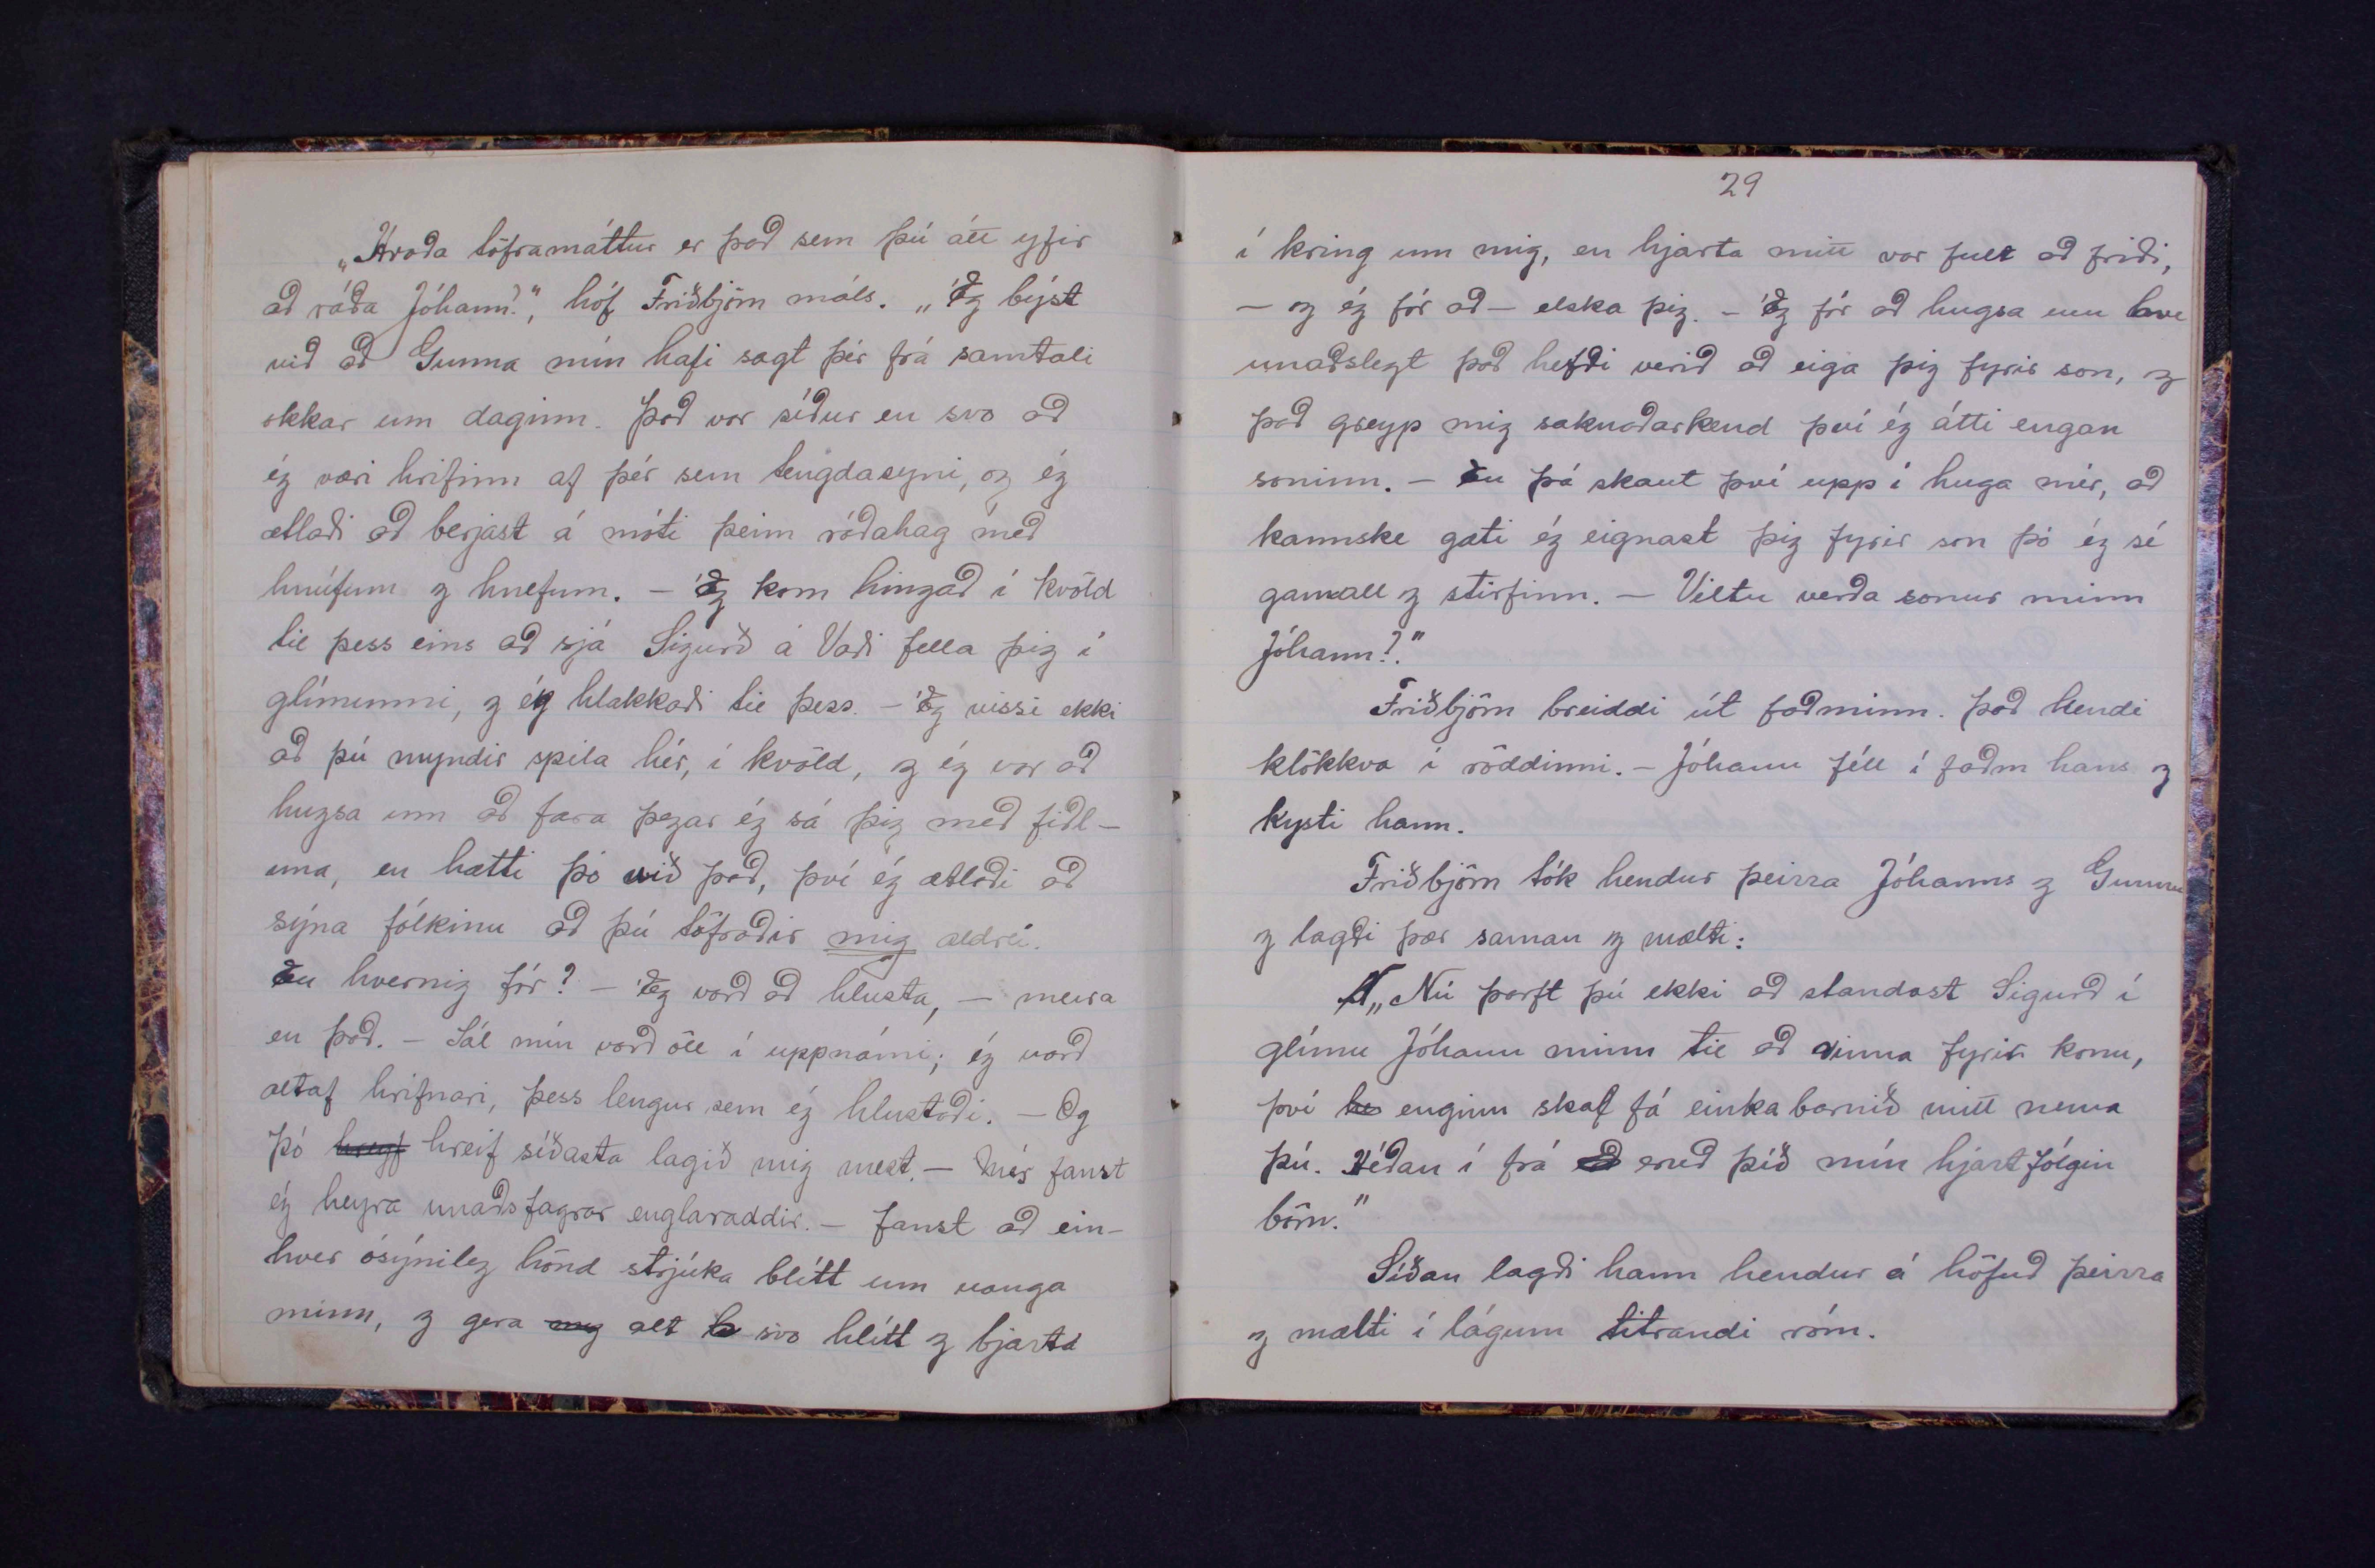 „Hvaða töframáttur er það sem þú átt yfir
að ráða Jóhann?“, hóf Friðbjörn máls. „Ég býst
við að Gunna mín hafi sagt þér frá samtali
okkar um daginn. Það var síður en svo að
ég væri hrifinn af þér sem tengdasyni, og ég
ætlaði að berjast á móti þeim ráðahag með
hnúfum og hnefum. – Ég kom hingað í kvöld
til þess eins að sjá Sigurð á Vaði fella þig í
glímunni, og ég hlakkaði til þess. – Ég vissi ekki
að þú myndir spila hér, í kvöld, og ég var að
hugsa um að fara þegar ég sá þig með fiðl-
una, en hætti þó við það, því ég ætlaði að
sýna fólkinu að þú töfraðir mig aldrei.
En hvernig fór? – Ég varð að hlusta, – meira
en það. – Sál mín varð öll í uppnámi; ég varð
altaf hrifnari, þess lengur sem ég hlustaði. – Og
þó hreyf hreif síðasta lagið mig mest. – Mér fanst
ég heyra unaðsfagrar englaraddir. – fanst að ein-
hver ósýnileg hönd strjúka blítt um vanga
minn, og gera mig alt h svo hlítt og bjarta
29
í kring um mig, en hjarta mitt var fult að friði,
– og ég fór að – elska þig. – Ég fór að hugsa um hve
unaðslegt það hefði verið að eiga þig fyrir son, og
það greyp mig saknaðarkend því ég átti engan
soninn. – En þá skaut því upp í huga mér, að
kannske gæti ég eignast þig fyrir son þó ég sé
gamall og stirfinn. – Viltu verða sonur minn
Jóhann?.“
Friðbjörn breiddi út faðminn. Það kendi
klökkva í röddinni. – Jóhann féll í faðm hans og
kysti hann.
Friðbjörn tók hendur þeirra Jóhanns og Gunnu
og lagði þær saman og mælti:
N „Nú þarft þú ekki að standast Sigurð í
glímu Jóhann minn til að vinna fyrir konu,
því he enginn skal fá einkabarnið mitt nema
þú. Héðan í frá eð eruð þið mín hjartfólgin
börn.“
Síðan lagði hann hendur á höfuð þeirra
og mælti í lágum titrandi róm.